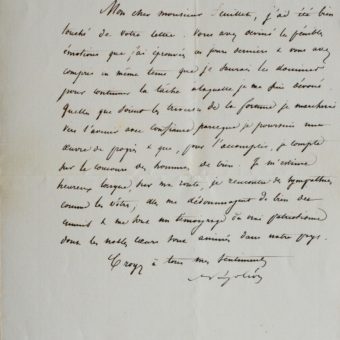 Mon cher monsieur Feuillet, j'ai été bien
touché de votre lettre. Vous avez deviné les pénibles
émotions que j'ai éprouvées ces jours derniers & vous avez
compris en même tems que je saurais les dominer
pour continuer la tâche à laquelle je me suis dévoué.
Quelles que soient les rigueurs de la fortune je marcherai
vers l'avenir avec confiance parceque je poursuis une
œuvre de progrès & que, pour l'accomplir, je compte
sur le concours des hommes de bien. Je m'estime
heureux lorsque sur ma route, je rencontre des sympathies
comme les vôtres, elles me dédommagent de bien des
ennuis & me sont un témoignage du vrai patriotisme
dont les nobles cœurs sont animés dans notre pays.
Croyez à tous mes sentiments
Napoléon